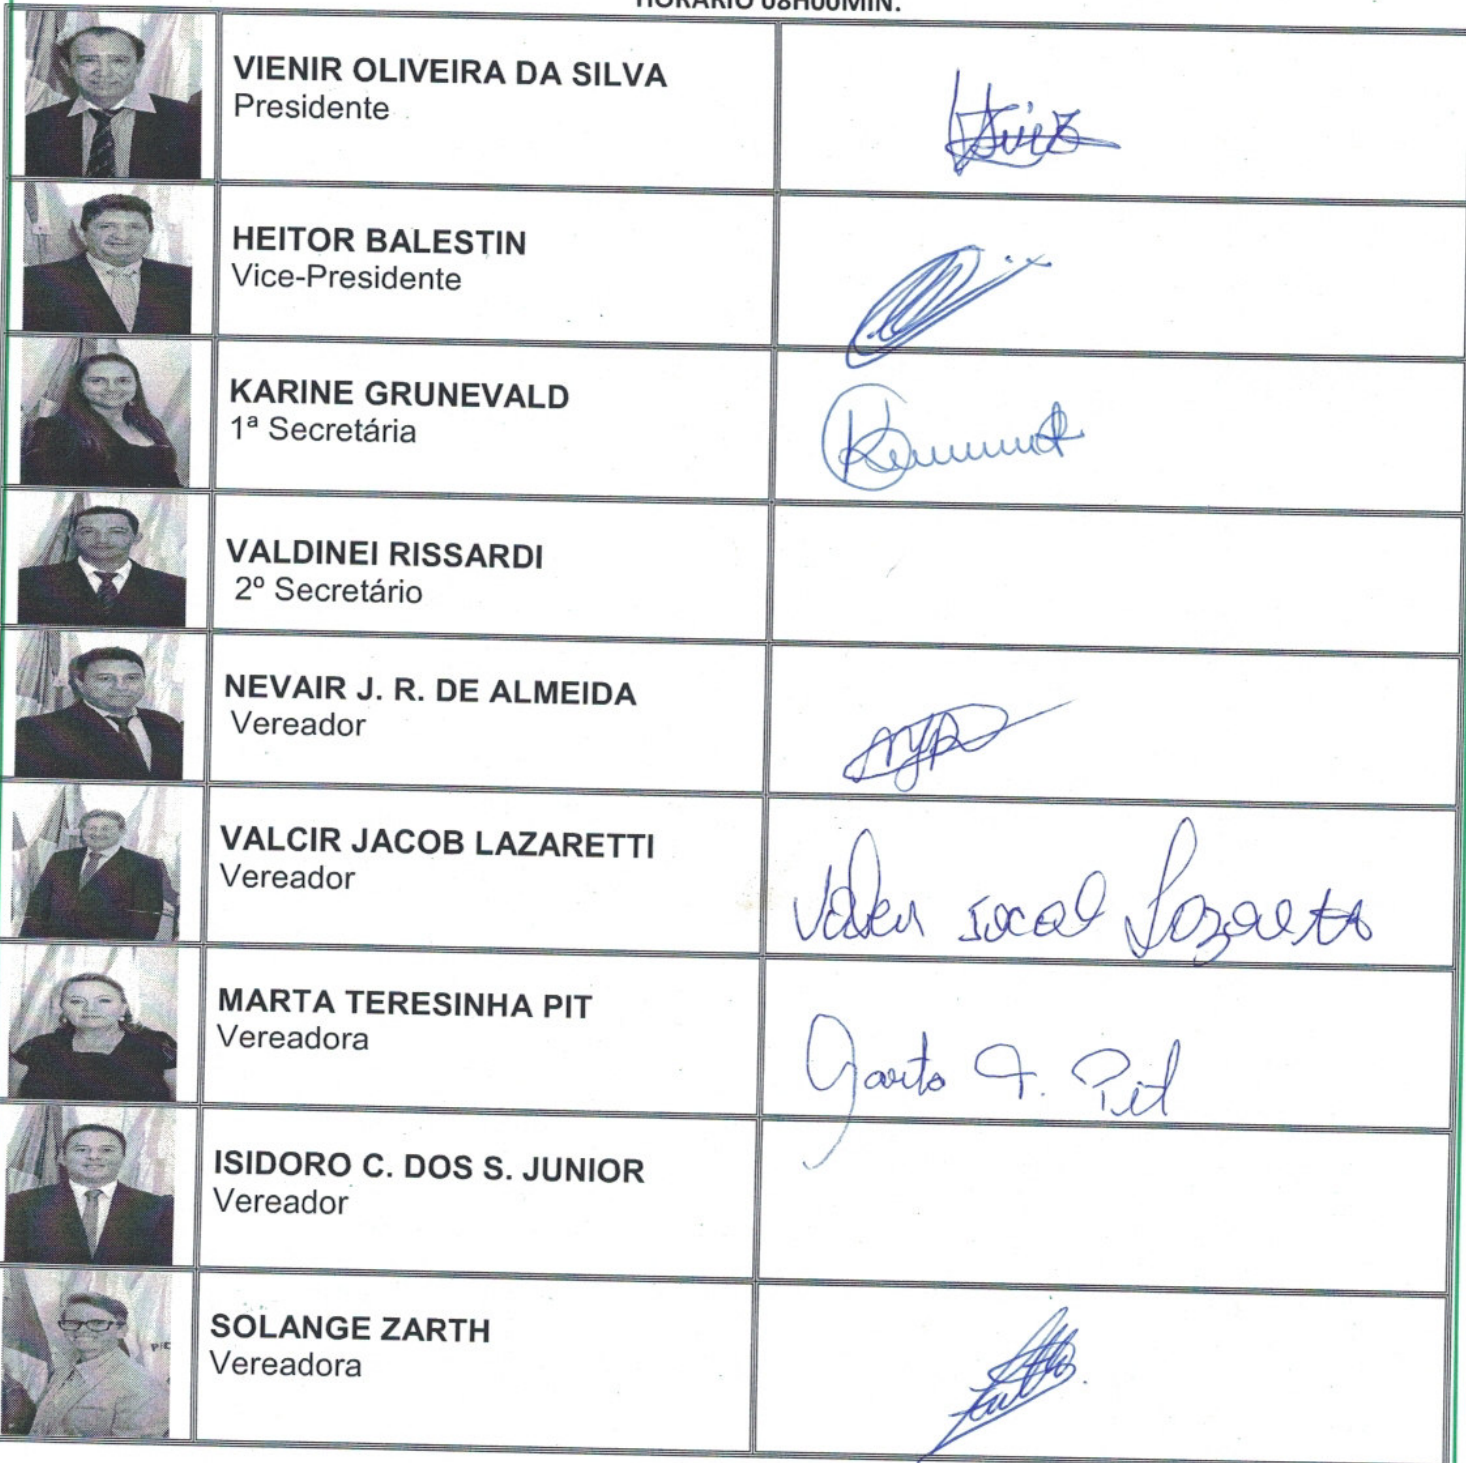 HORÁRIO 08H00MIN.
VIENIR OLIVEIRA DA SILVA
Presidente
HEITOR BALESTIN
Vice-Presidente
KARINE GRUNEVALD
1ª Secretária
VALDINEI RISSARDI
2º Secretário
NEVAIR J. R. DE ALMEIDA
Vereador
VALCIR JACOB LAZARETTI
Vereador
MARTA TERESINHA PIT
Vereadora
T. Pit
ISIDORO C. DOS S. JUNIOR
Vereador
SOLANGE ZARTH
Vereadora